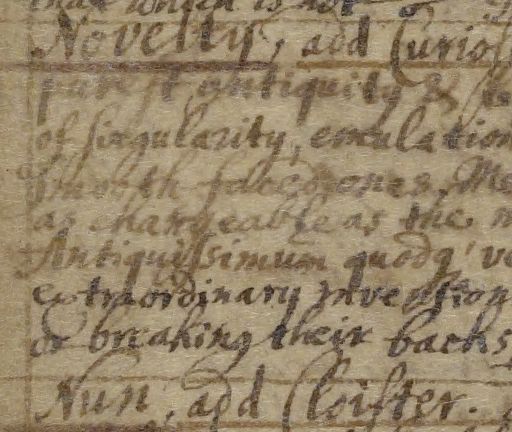 that which is not
Novelty, add Curios
antiquity &
of singularity, emulation
as changeable as the
Antiquissimum quodq' ve
extraordinary invention
or breaking their backs,
Nun, add Cloister.